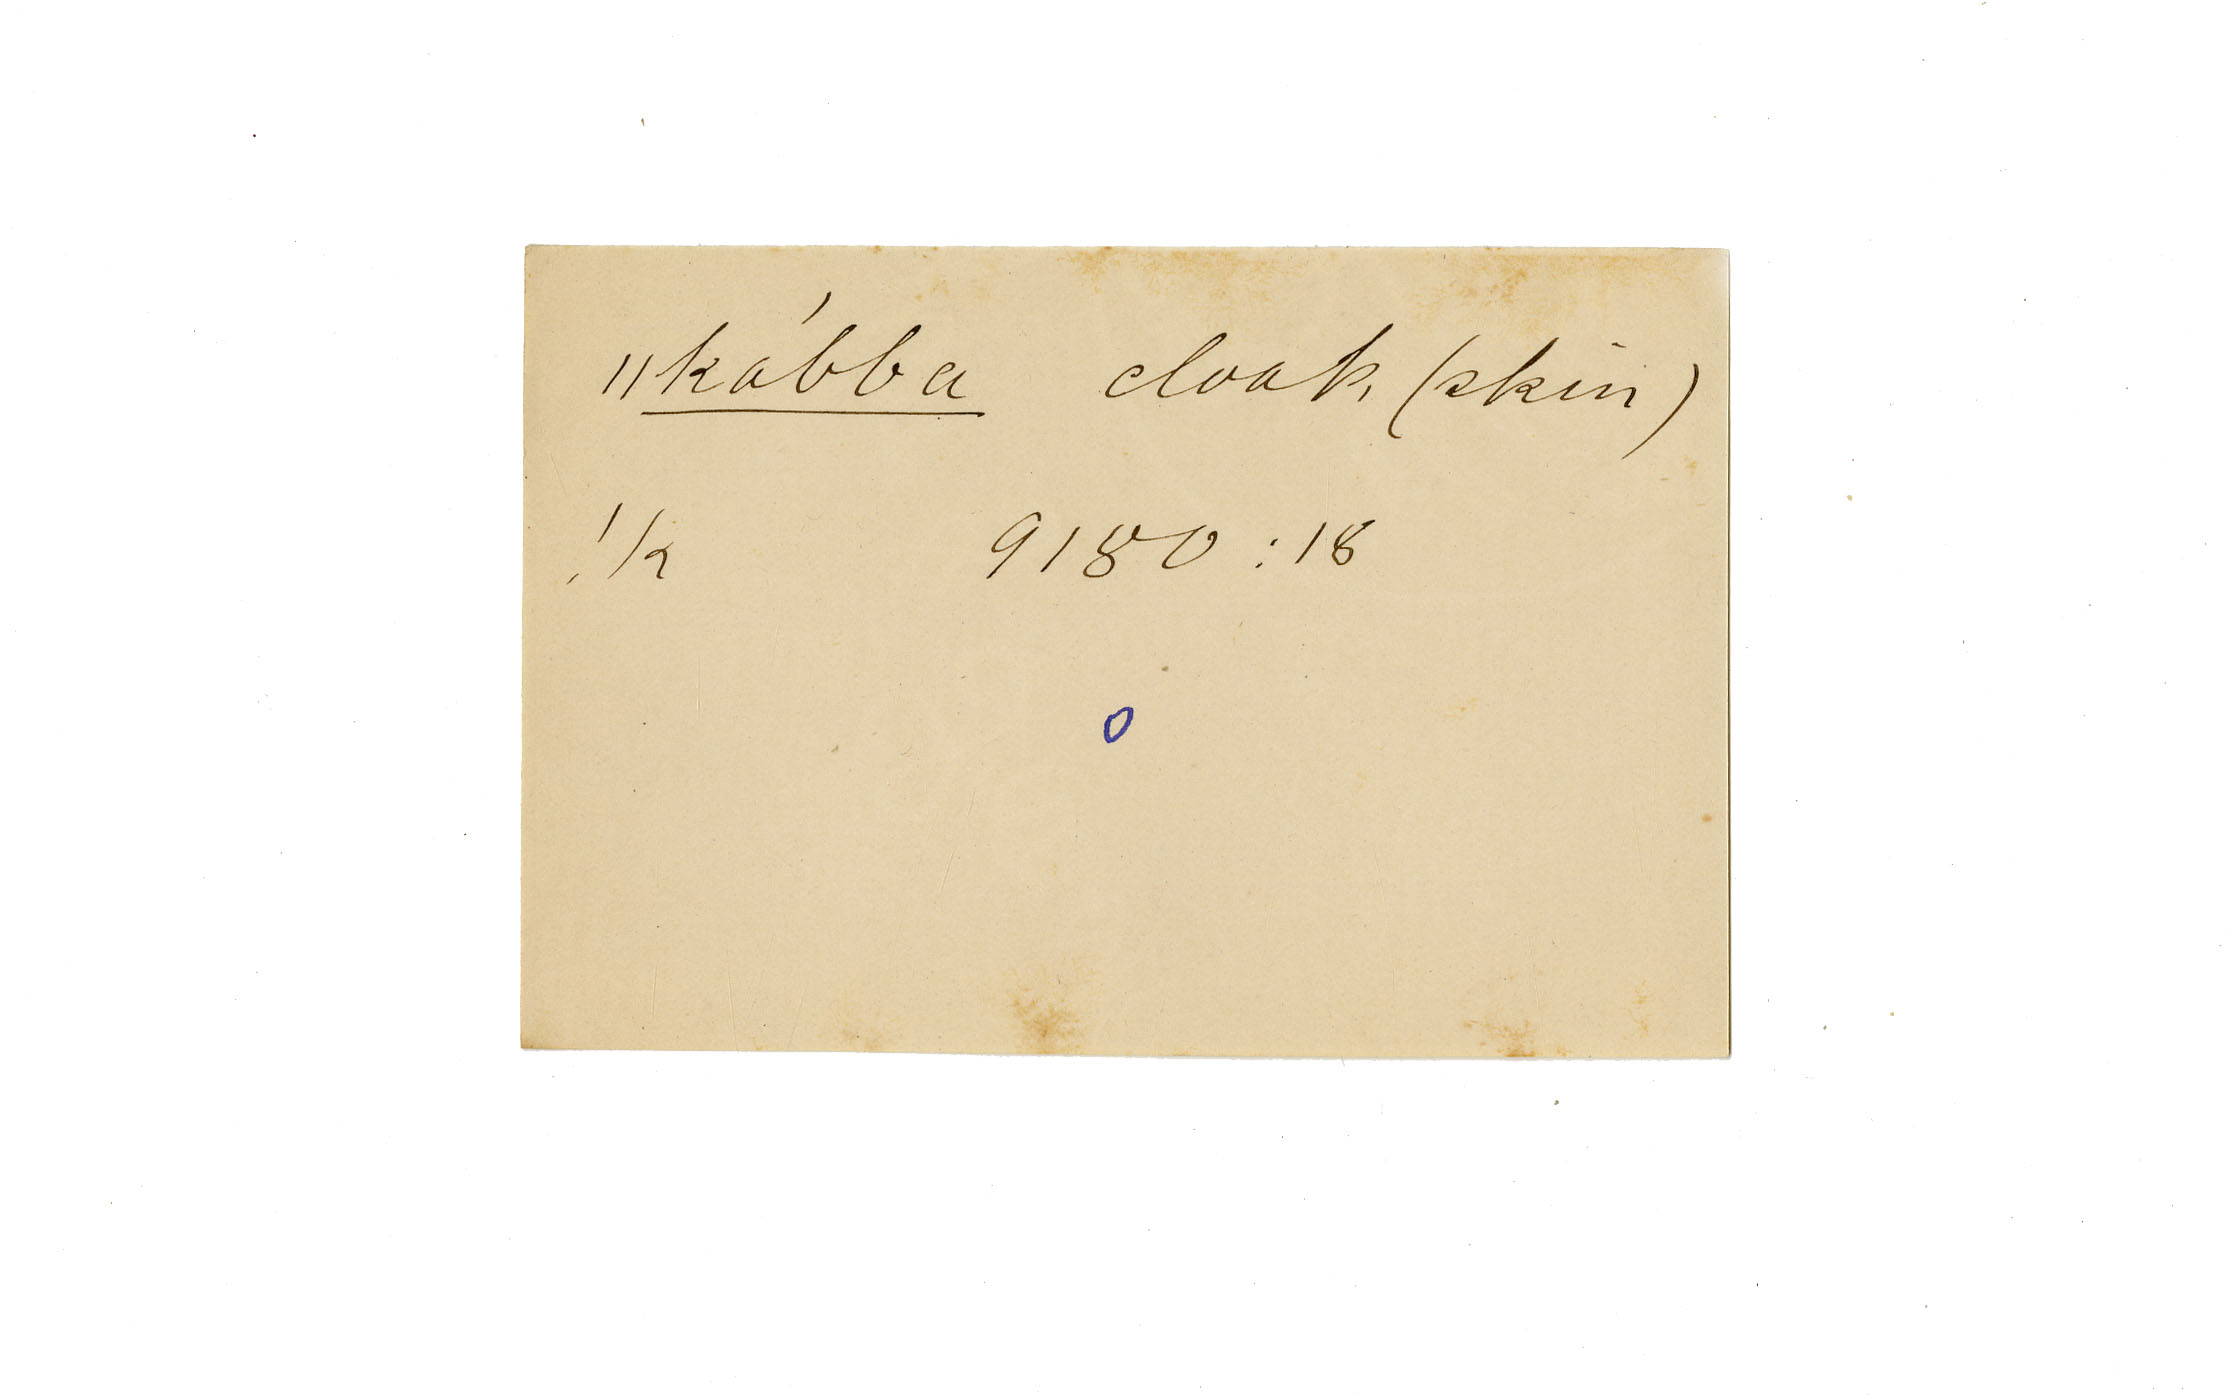 ǁkábba cloak (skin)
!k 9180 : 18
o